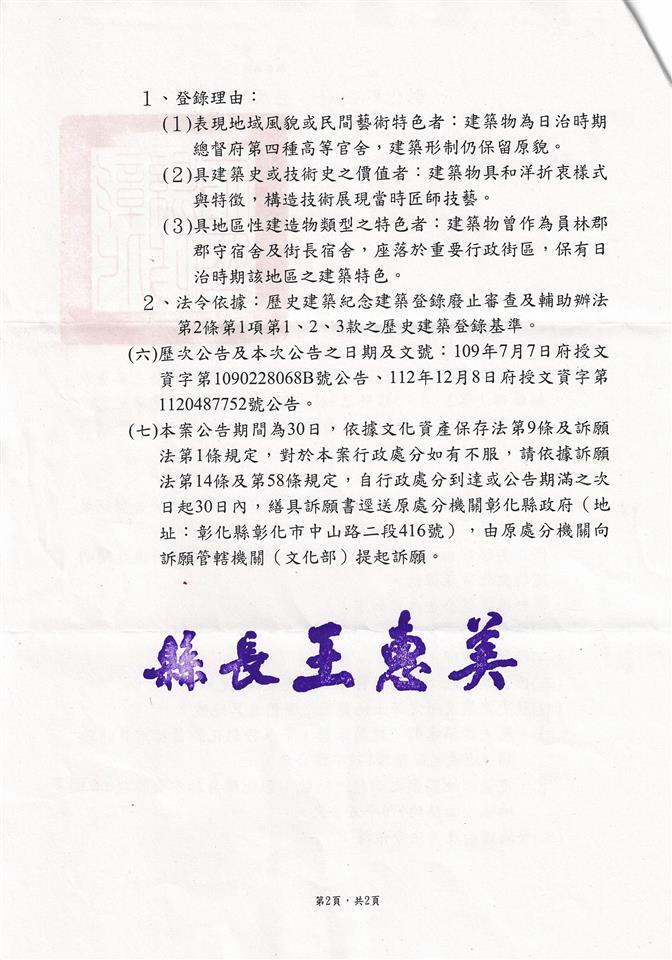 1、登錄理由：
(1)表現地域風貌或民間藝術特色者：建築物為日治時期
總督府第四種高等官舍，建築形制仍保留原貌。
(2)具建築史或技術史之價值者：建築物具和洋折衷樣式
與特徵，構造技術展現當時匠師技藝。
(3)具地區性建造物類型之特色者：建築物曾作為員林郡
郡守宿舍及街長宿舍，座落於重要行政街區，保有日
治時期該地區之建築特色。
2、法令依據：歷史建築紀念建築登錄廢止審查及輔助辦法
第2條第1項第1、2、3款之歷史建築登錄基準。
(六)歷次公告及本次公告之日期及文號：109年7月7日府授文
資字第1090228068B號公告、112年12月8日府授文資字第
1120487752號公告。
(七)本案公告期間為30日，依據文化資產保存法第9條及訴願
法第1條規定，對於本案行政處分如有不服，請依據訴願
法第14條及第58條規定，自行政處分到達或公告期滿之次
日起30日內，繕具訴願書逕送原處分機關彰化縣政府（地
址：彰化縣彰化市中山路二段416號），由原處分機關向
訴願管轄機關（文化部）提起訴願。
縣長王惠美
第2頁，共2頁